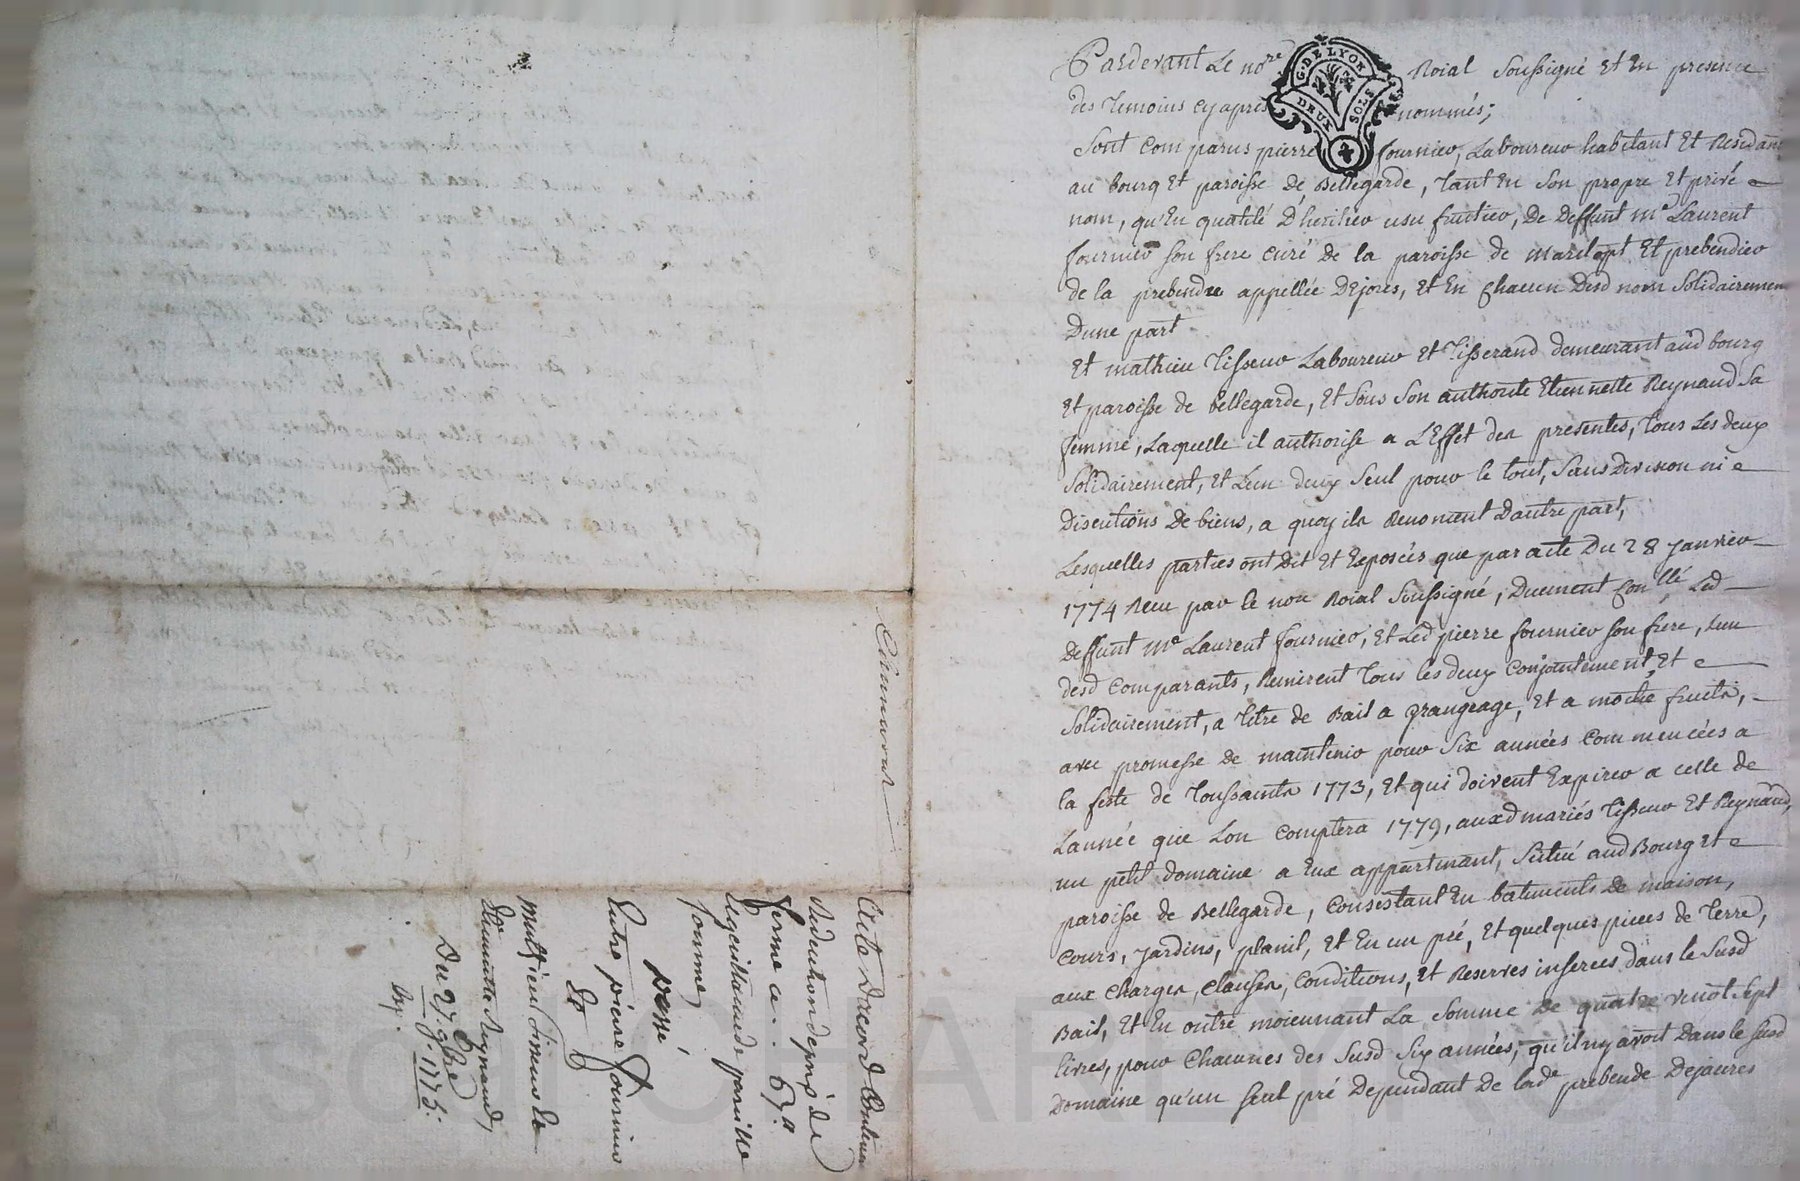 Pardevant Le nore Roial Soussigné Et En presence
des Temoins cy apres nommés;
Sont Comparus pierre fournier, Laboureur habitant Et Residant
au bourg Et paroisse de Bellegarde, Tant En Son propre Et privé
nom, qu'En qualité D'heritier usufruitier, De Deffunt me Laurent
fournier son frere Curé de la paroisse de Marclopt Et prebendier
de la prebendre appellée Dejores, Et En Chacun Desd nom Solidairement
Dune part
Et mathieu Tisseur Laboureur Et Tisserand demeurant aud bourg
Et paroisse de bellegarde, Et Sous Son authorité Etiennette Reynaud Sa
femme, Laquelle il authorise a L'Effet des presentes, Tous Les deux
Solidairement, Et Lun deux Seul pour le tout, Sans Division ni
Discutions De biens, a quoy ils Renoncent Dautre part,
Lesquelles parties ont Dit Et Exposées que par acte Du 28 Janvier
1774 Recu par le nore Roial Soussigné, Duement Conllé, Led
Deffunt me Laurent fournier, Et Led pierre fournier son frere, Lun
desd Comparants, Remirent Tous les deux Conjointement, Et
Solidairement, a Titre de Bail a grangeage, Et a moitié fruits,
avec promesse de maintenir pour Six années Commencées a
la feste de Toussaints 1773, Et qui doivent Expirer a celle de
Lannée que Lon Comptera 1779, auxd mariés Tisseur Et Reynaud,
un petit Domaine a Eux appartenant, Scitué aud Bourg Et
paroisse de Bellegarde, Consestant En batiments de maison,
Cours, Jardins, planil, Et En un pré, Et quelques pieces de Terre,
aux Charges, Clauses, Conditions, Et Reserves inserées dans le Susd
Bail, Et En outre moiennant La Somme De quatre vingt Sept
livres, pour Chacunes des Susd Six années, qu'il ny avoit Dans le susd
Domaine qu'un seul pré Dependant De lade prebende Dejaures
G. DE LYON
DEUX SOLS
Acte Daccord Contenant
Reduction du prix de
ferme a 67 #
Passé,
Entre pierre Fournier
Et
Mathieu Tisseur Et
Etiennette Reynaud
Du 27 9bre 1775.